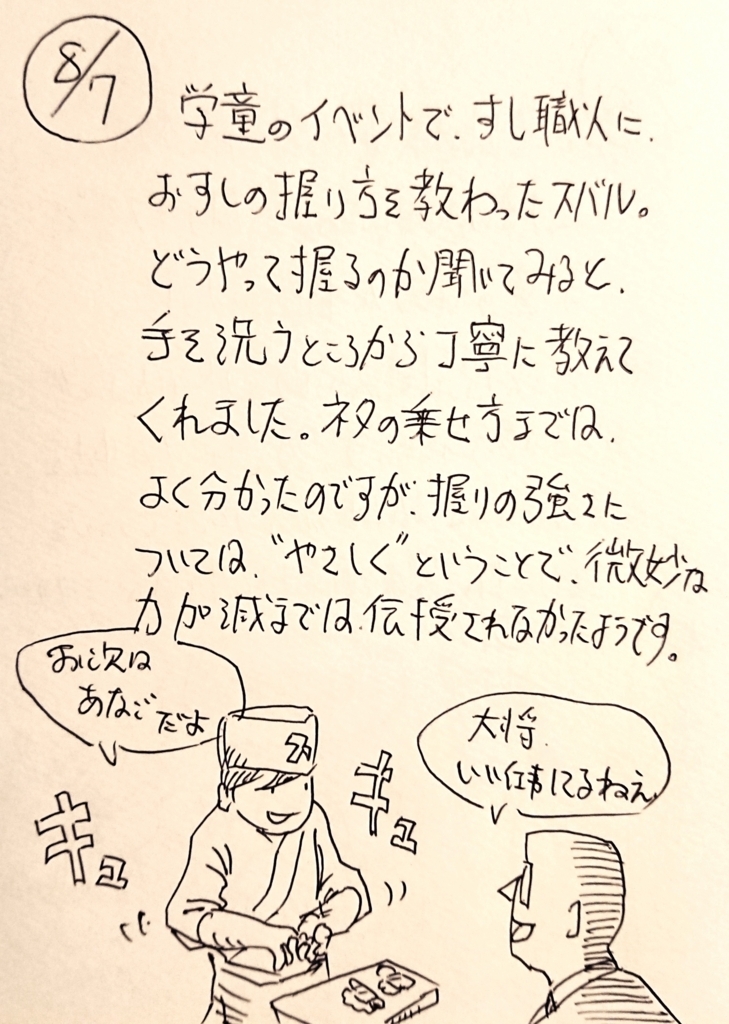 8/7
学童のイベントで、すし職人に、
おすしの握り方を教わったスバル。
どうやって握るのか聞いてみると、
手を洗うところから丁寧に教えて
くれました。ネタの乗せ方までは、
よく分かったのですが、握りの強さに
ついては、“やさしく”ということで、微妙な
力加減までは、伝授されなかったようです。
お次は
あなごだよ
大将、
いい仕事してるねえ
ス
キュ
キュ